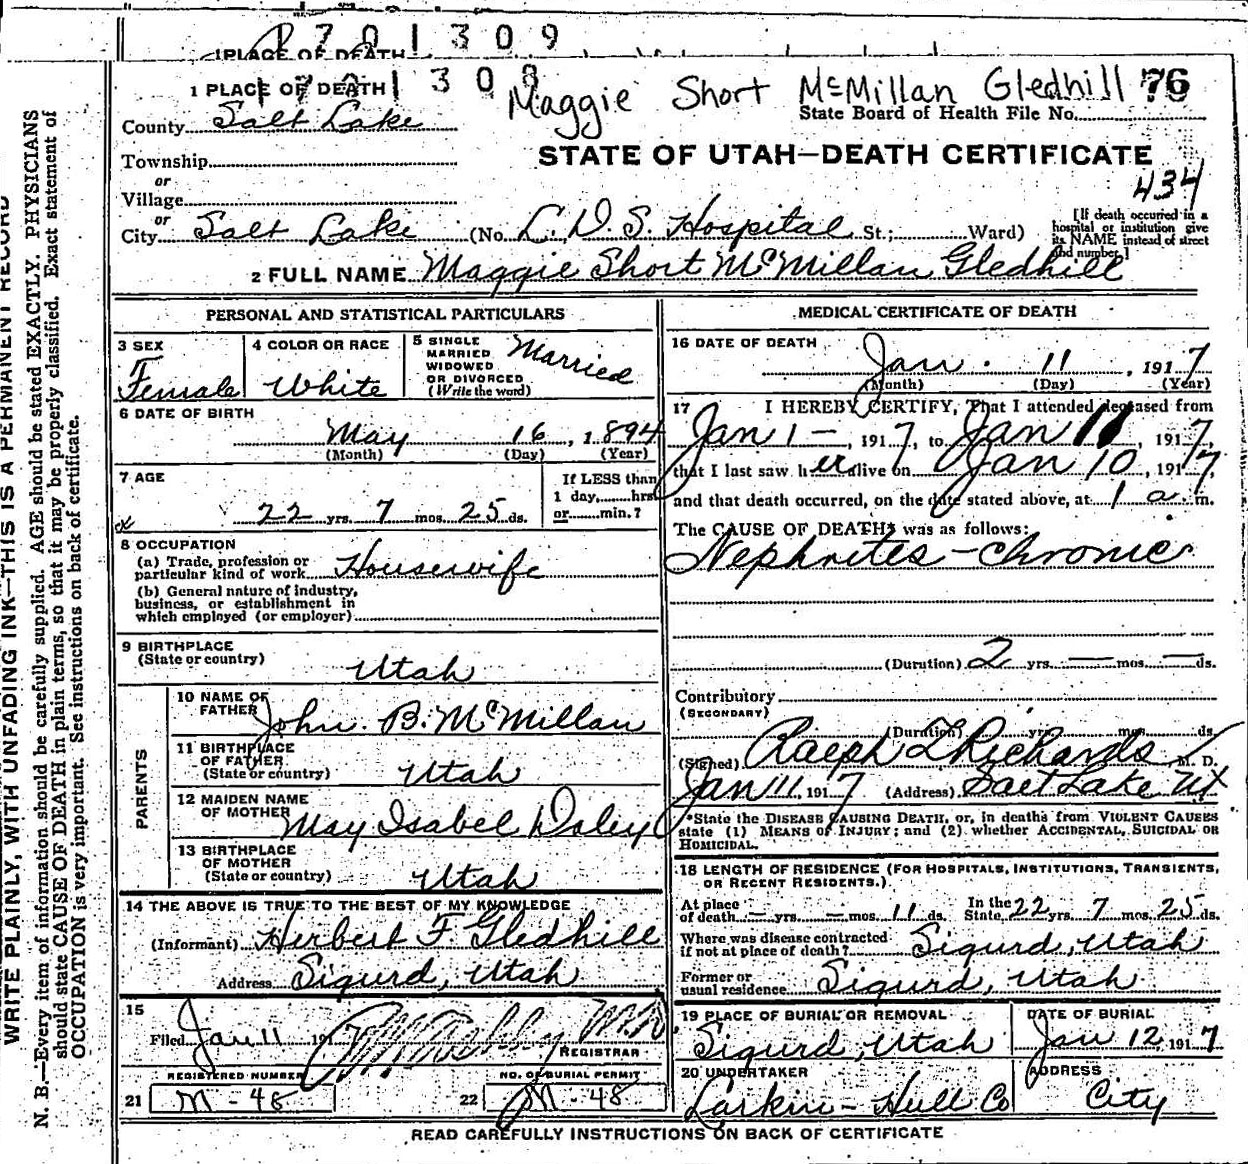 1701309
1 PLACE OF DEATH
1701308
1 PLACE OF DEATH
Maggie Short McMillan Gledhill 76
County Salt Lake
State Board of Health File No.
Township
STATE OF UTAH—DEATH CERTIFICATE
or
434
Village
or
City Salt Lake (No. L. D. S. Hospital St.; Ward)
[If death occurred in a hospital or institution give its NAME instead of street and number.]
2 FULL NAME Maggie Short McMillan Gledhill
PERSONAL AND STATISTICAL PARTICULARS
3 SEX
Female
4 COLOR OR RACE
White
5 SINGLE
MARRIED
WIDOWED
OR DIVORCED
(Write the word)
Married
6 DATE OF BIRTH
May 16, 1894
(Month) (Day) (Year)
7 AGE
22 yrs. 7 mos. 25 ds.
If LESS than
1 day, hrs.
or min.?
8 OCCUPATION
(a) Trade, profession or
particular kind of work Housewife
(b) General nature of industry,
business, or establishment in
which employed (or employer)
9 BIRTHPLACE
(State or country)
Utah
PARENTS
10 NAME OF
FATHER John B. McMillan
11 BIRTHPLACE
OF FATHER
(State or country) Utah
12 MAIDEN NAME
OF MOTHER May Isabel Daley
13 BIRTHPLACE
OF MOTHER
(State or country) Utah
14 THE ABOVE IS TRUE TO THE BEST OF MY KNOWLEDGE
(Informant) Herbert F. Gledhill
Address Sigurd, Utah
15
Filed Jan 11 1917
REGISTRAR
REGISTERED NUMBER
21 M - 48
NO. OF BURIAL PERMIT
22 M - 48
MEDICAL CERTIFICATE OF DEATH
16 DATE OF DEATH
Jan. 11, 1917
(Month) (Day) (Year)
17 I HEREBY CERTIFY, That I attended deceased from
Jan 1 —, 1917, to Jan 11, 1917,
that I last saw her alive on Jan 10, 1917,
and that death occurred, on the date stated above, at 1 a. m.
The CAUSE OF DEATH* was as follows:
Nephrites - chronic
(Duration) 2 yrs. — mos. — ds.
Contributory
(SECONDARY)
(Duration) yrs. mos. ds.
(Signed) Ralph T Richards M. D.
Jan 11, 1917 (Address) Salt Lake Ut
*State the DISEASE CAUSING DEATH, or, in deaths from VIOLENT CAUSES
state (1) MEANS OF INJURY; and (2) whether ACCIDENTAL, SUICIDAL OR
HOMICIDAL.
18 LENGTH OF RESIDENCE (FOR HOSPITALS, INSTITUTIONS, TRANSIENTS,
OR RECENT RESIDENTS.)
At place
of death — yrs. — mos. 11 ds. In the State 22 yrs. 7 mos. 25 ds.
Where was disease contracted
if not at place of death? Sigurd, Utah
Former or
usual residence Sigurd, Utah
19 PLACE OF BURIAL OR REMOVAL
Sigurd, Utah
DATE OF BURIAL
Jan 12, 1917
20 UNDERTAKER
Larkin - Hull Co
ADDRESS
City
READ CAREFULLY INSTRUCTIONS ON BACK OF CERTIFICATE
WRITE PLAINLY, WITH UNFADING INK—THIS IS A PERMANENT RECORD
N. B.—Every item of information should be carefully supplied. AGE should be stated EXACTLY. PHYSICIANS
should state CAUSE OF DEATH in plain terms, so that it may be properly classified. Exact statement of
OCCUPATION is very important. See instructions on back of certificate.